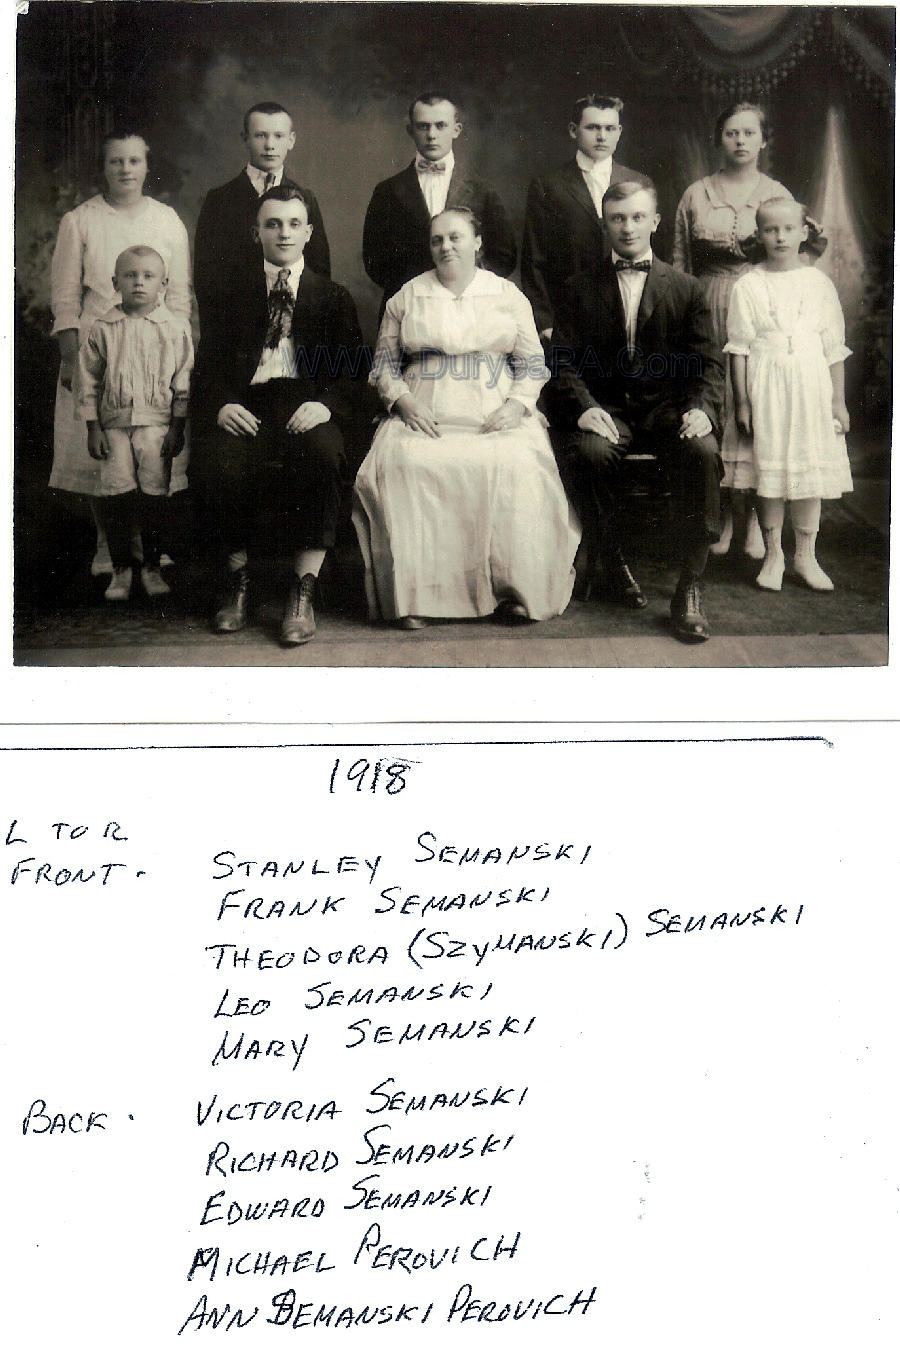 WWW.DuryeaPA.Com
1918
L TO R
FRONT - STANLEY SEMANSKI
FRANK SEMANSKI
THEODORA (SZYMANSKI) SEMANSKI
LEO SEMANSKI
MARY SEMANSKI
BACK - VICTORIA SEMANSKI
RICHARD SEMANSKI
EDWARD SEMANSKI
MICHAEL PEROVICH
ANN SEMANSKI PEROVICH